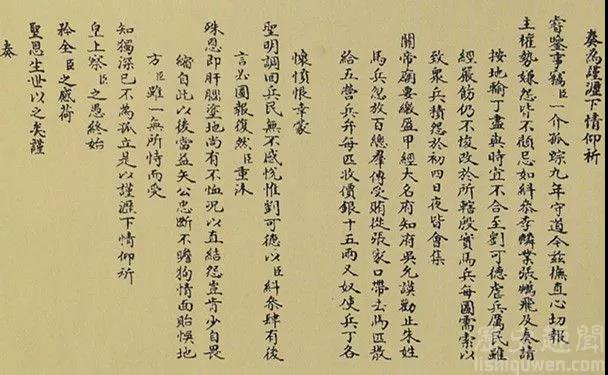 奏為謹瀝下情仰祈
睿鑒事竊臣一介孤踪九年守道今茲撫直心切報
主權勢嫌怨皆不顧忌如糾叅李麟業張鵬飛及奏請
按地輸丁盡與時宜不合至劉可德虐兵厲民雖
經嚴飭仍不悛改於所轄殷實馬兵每圖需索以
致衆兵積怨於初四日夜皆會集
關帝廟要繳盔甲經大名府知府吳允謨勸止朱姓
馬兵忽放百總羣傳受賄從張家口帶去馬匹散
給五營兵弁每匹收價銀十五兩又奴使兵丁各
懷憤恨幸蒙
聖明調回兵民無不感悅惟劉可德以臣糾叅肆有後
言必圖報復然臣重沐
殊恩即肝腦塗地尚有不恤況以直結怨豈肯少自畏
縮自此以後當益矢公忠斷不瞻狥情面貽悞地
方臣雖一無所恃而受
知獨深已不為孤立是以謹瀝下情仰祈
皇上察臣之愚終始
矜全臣之感荷
聖恩生世以之矣謹
奏
历史趣聞
lishiquwen.com